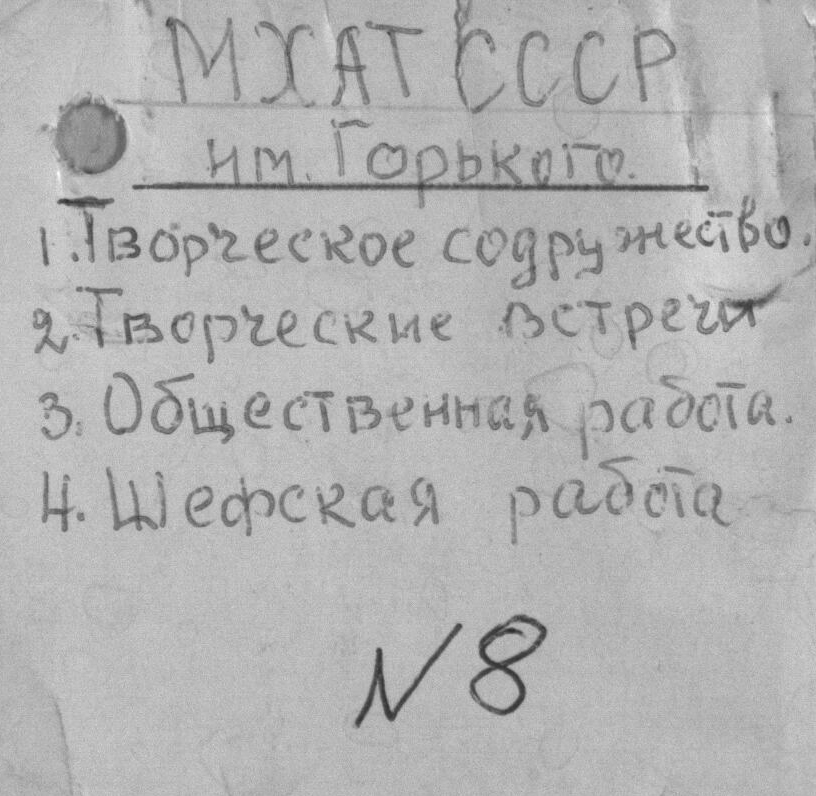 МХАТ СССР
им. Горького.
1. Творческое содружество.
2. Творческие встречи
3. Общественная работа.
4. Шефская работа
N 8